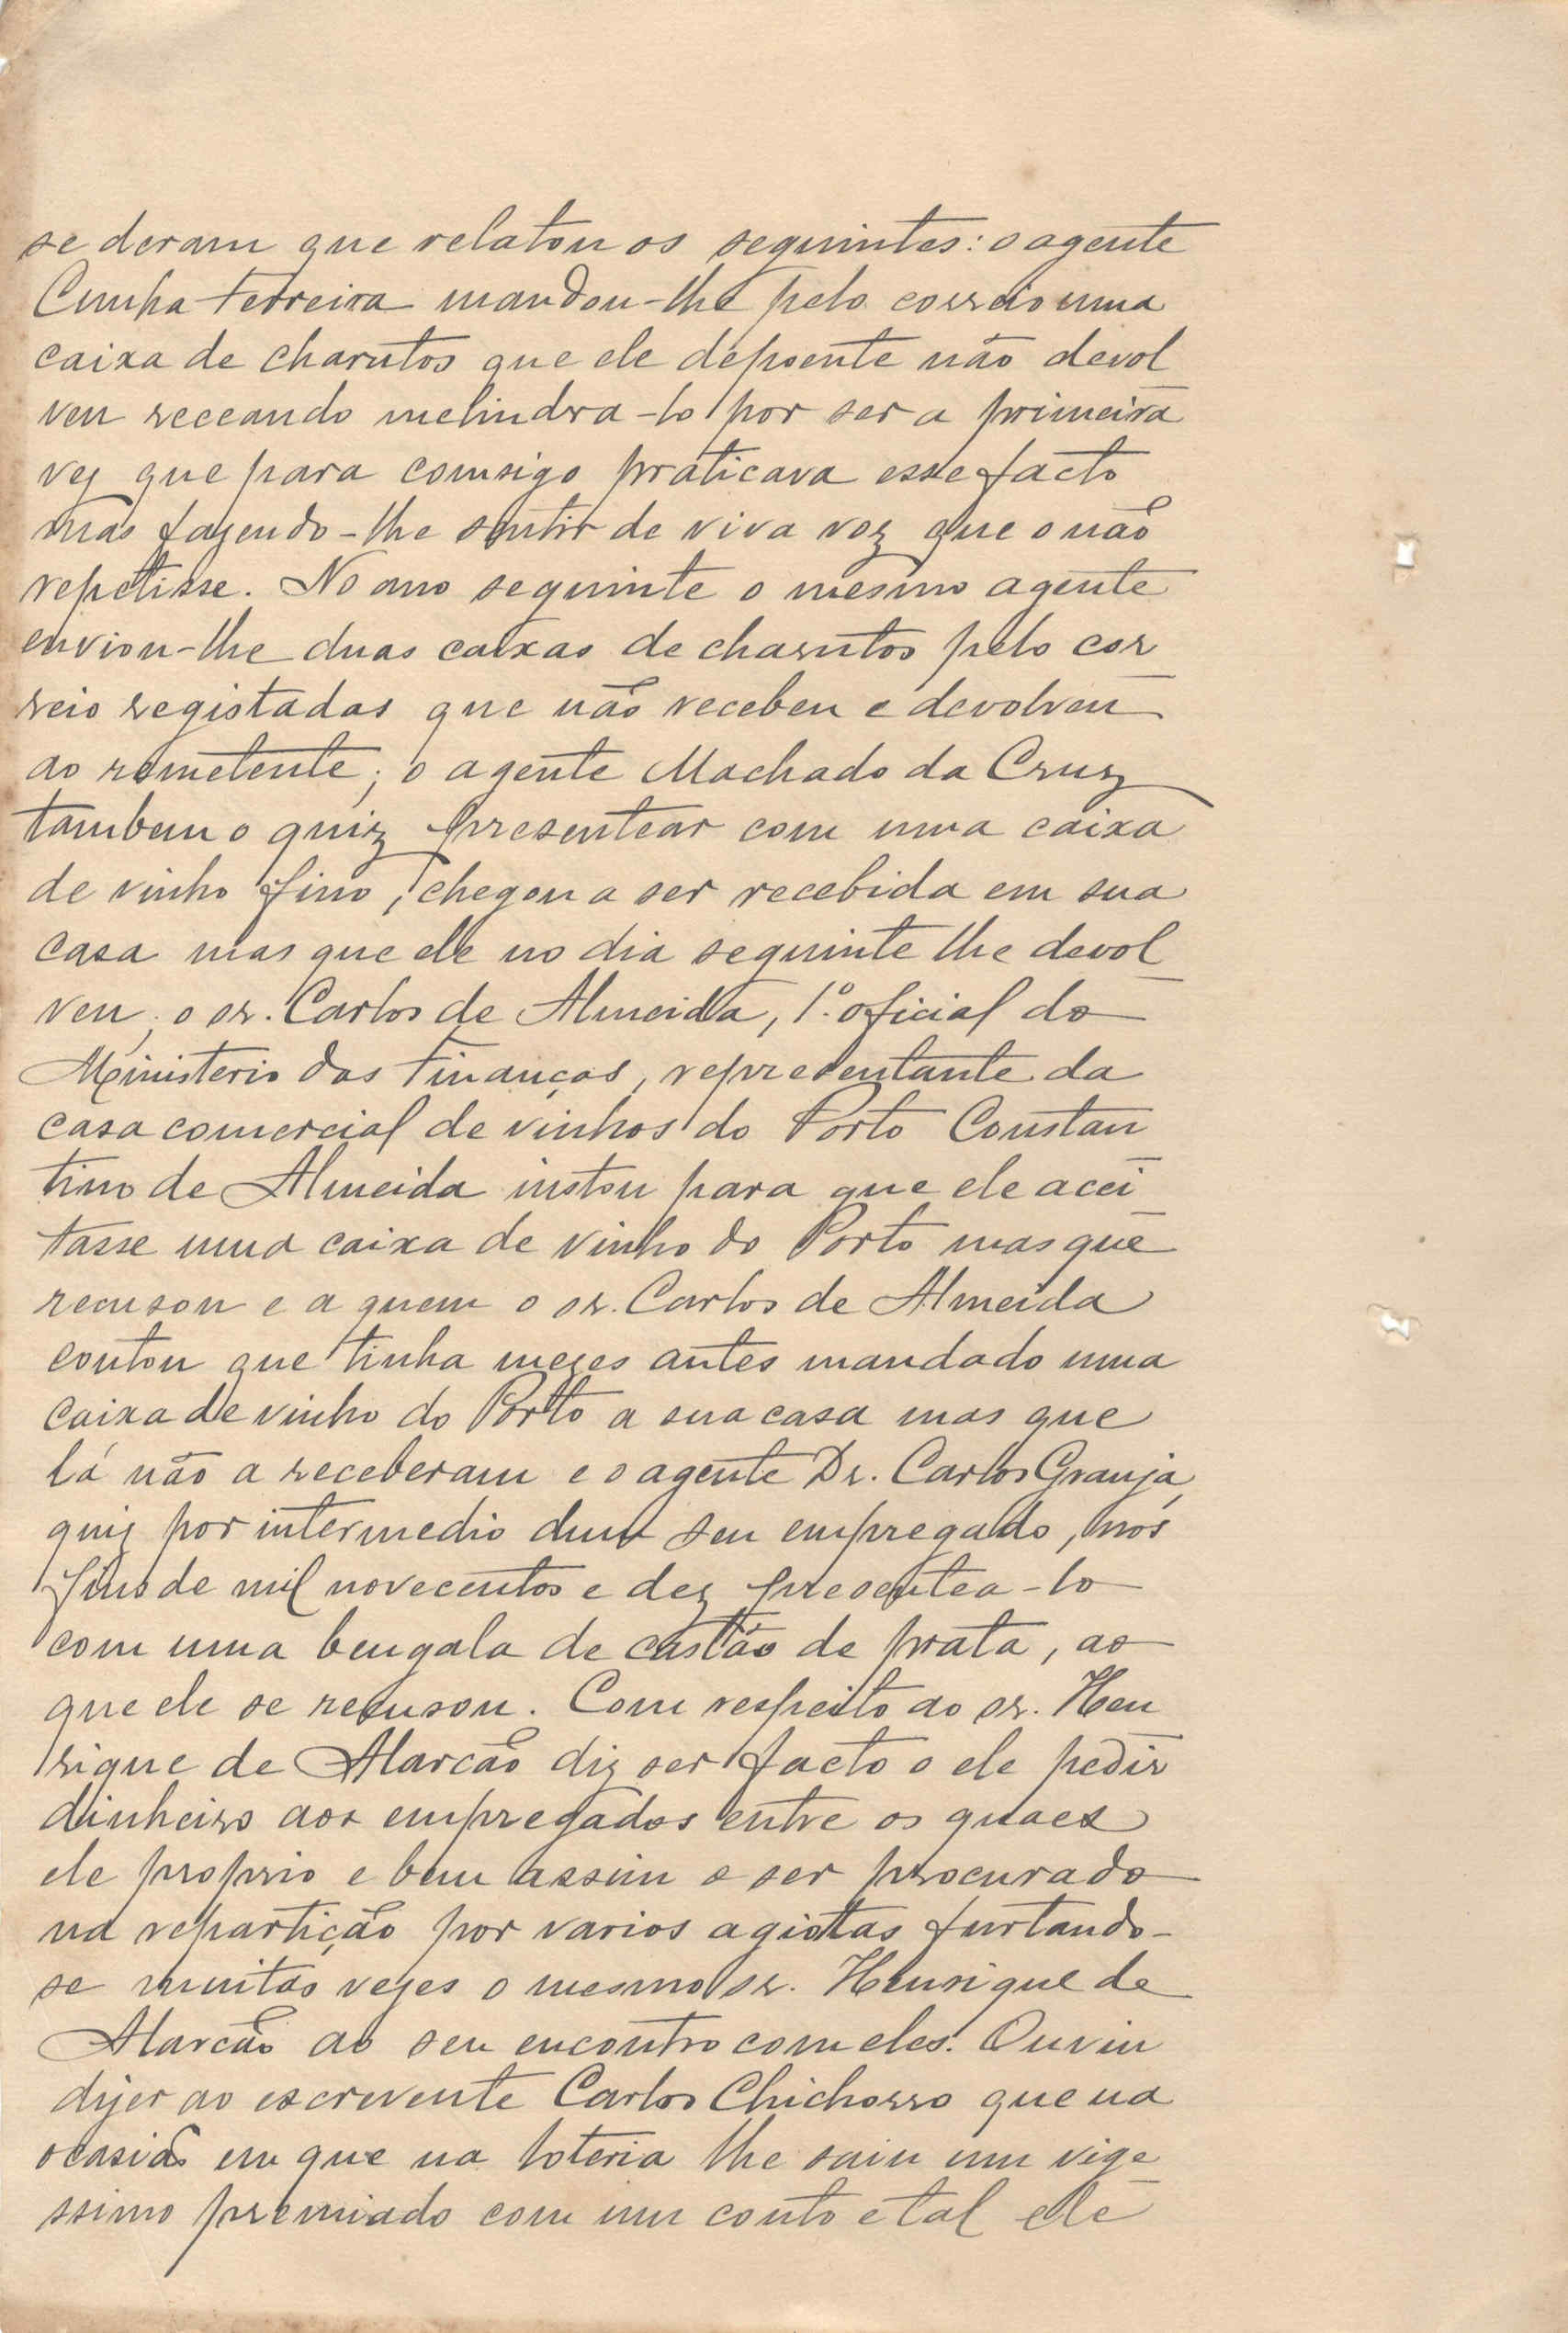 se deram que relatou os seguintes: o agente
Cunha Ferreira mandou-lhe pelo correio uma
caixa de charutos que ele depoente não devol
veu receando melindra-lo por ser a primeira
vez que para comsigo praticava esse facto
mas fazendo-lhe sentir de viva voz que o não
repetisse. No ano seguinte o mesmo agente
enviou-lhe duas caixas de charutos pelo cor
reio registadas que não recebeu e devolveu
ao remetente; o agente Machado da Cruz
tambem o quiz presentear com uma caixa
de vinho fino, chegou a ser recebida em sua
casa mas que ele no dia seguinte lhe devol
veu; o sr. Carlos de Almeida, 1.º oficial do
Ministerio das Finanças, representante da
casa comercial de vinhos do Porto Constan
tino de Almeida instou para que ele acei
tasse uma caixa de vinho do Porto mas que
recusou e a quem o sr. Carlos de Almeida
contou que tinha mezes antes mandado uma
caixa de vinho do Porto a sua casa mas que
lá não a receberam e o agente Dr. Carlos Granja,
quiz por intermedio dum seu empregado, nos
fins de mil novecentos e dez presentea-lo
com uma bengala de castão de prata, ao
que ele se recusou. Com respeito ao sr. Hen
rique de Alarcão diz ser facto o ele pedir
dinheiro aos empregados entre os quaes
ele proprio e bem assim o ser procurado
na repartição por varios agiotas furtando-
se muitas vezes o mesmo sr. Henrique de
Alarcão ao seu encontro com eles. Ouviu
dizer ao escrevente Carlos Chichorro que na
ocasião em que na loteria lhe saiu um vige
ssimo premiado com um conto e tal ele